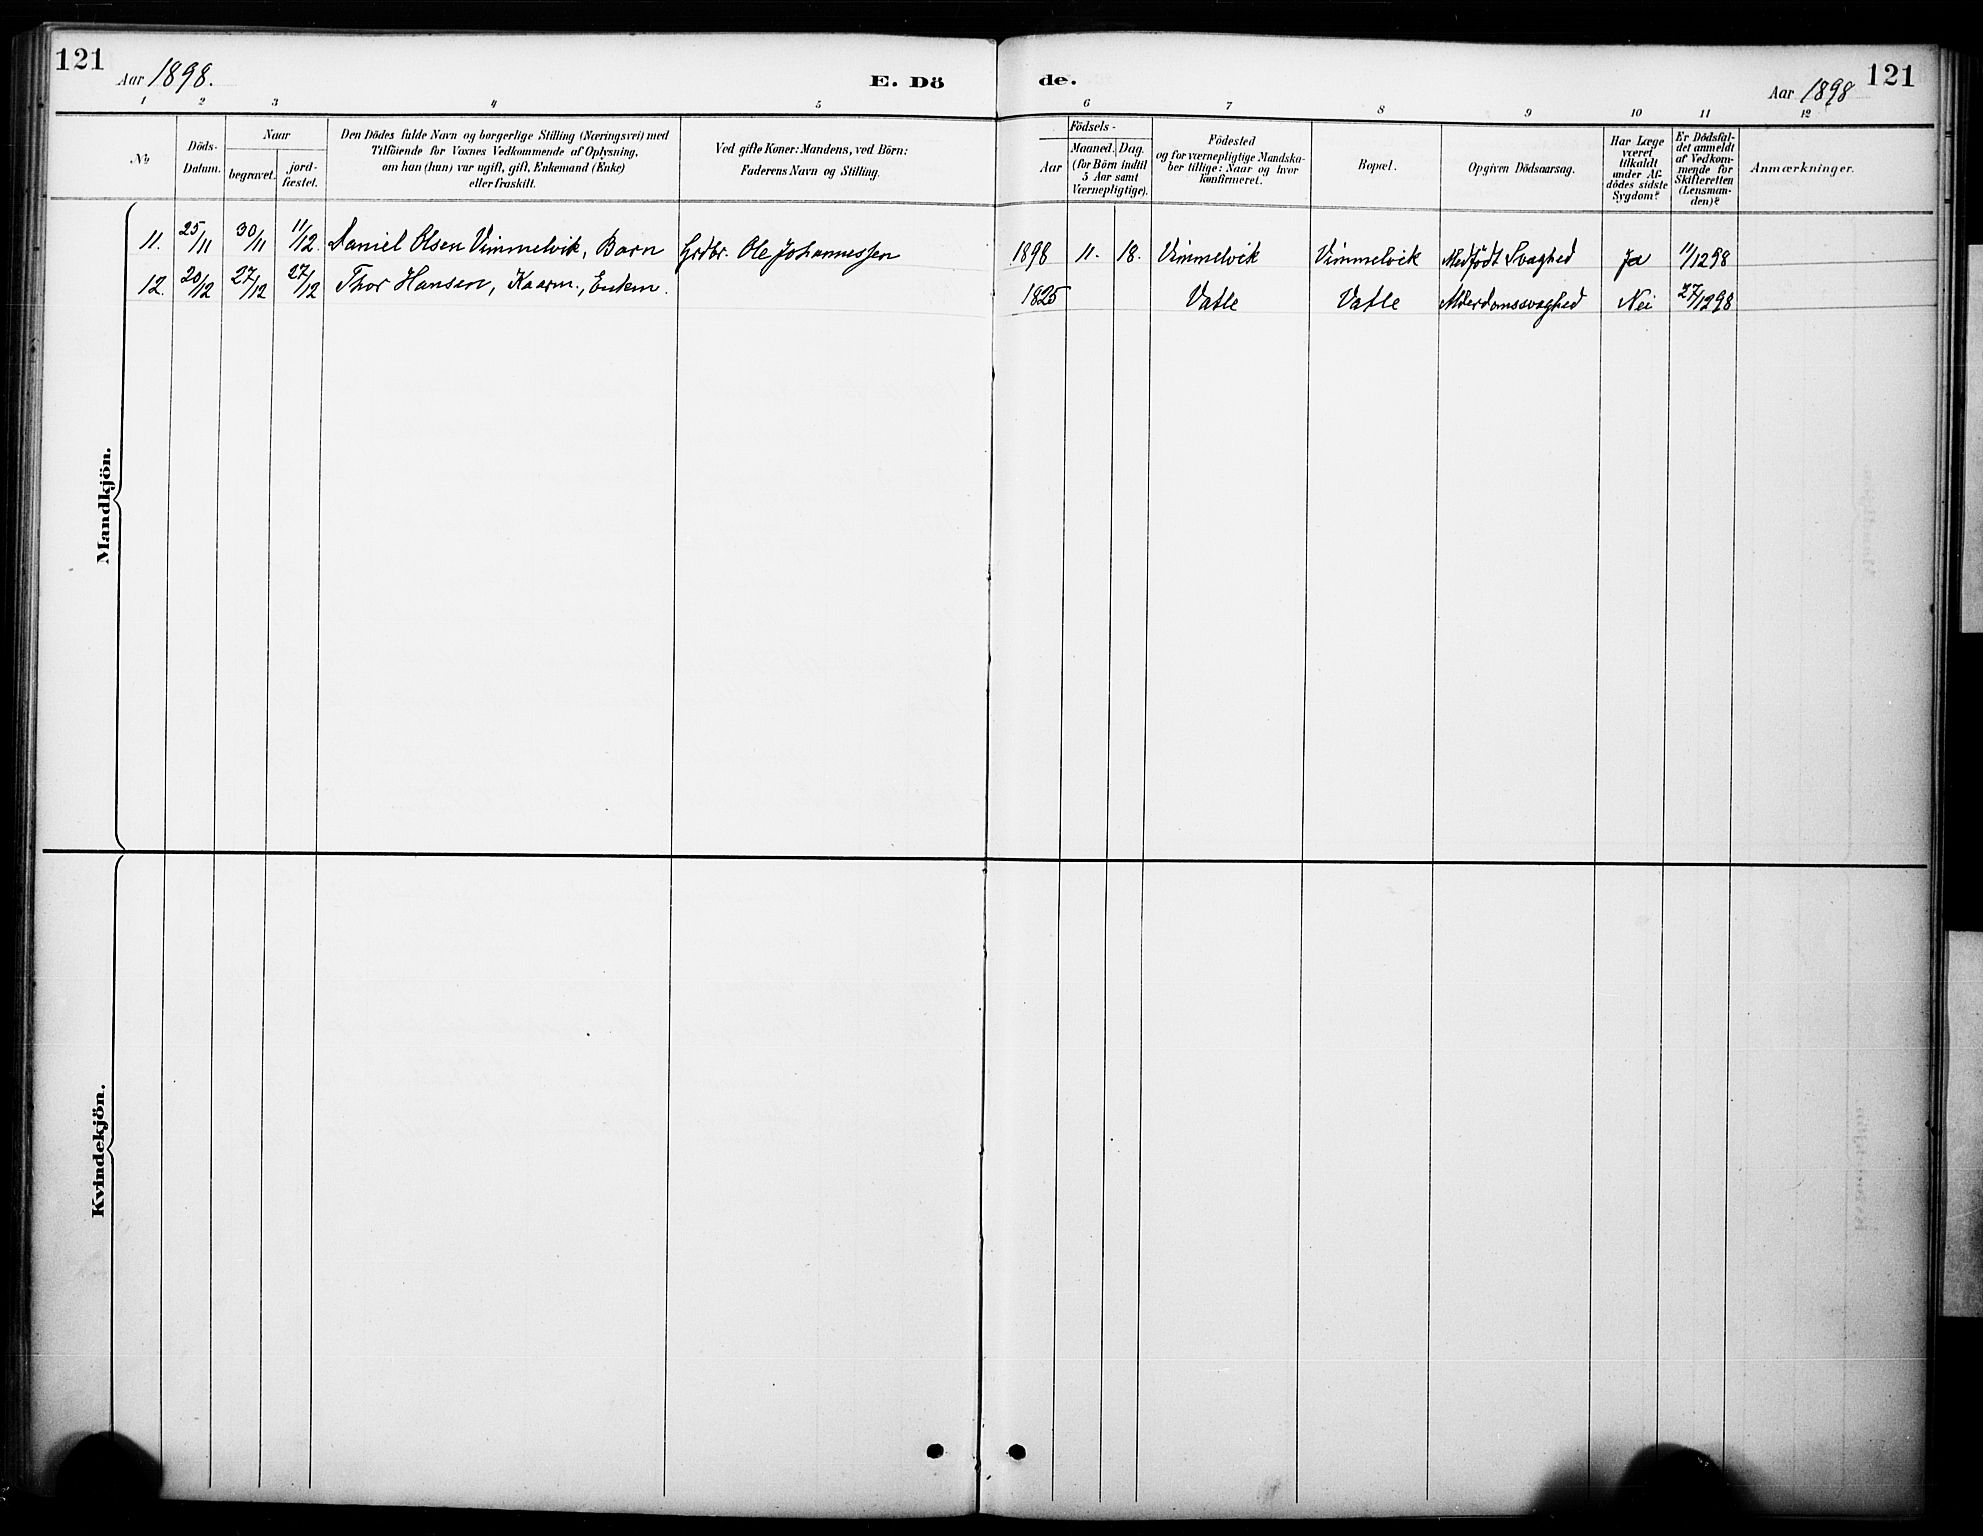 121
Aar 1898.
E. Dö
de.
Aar 1898
121
1 2 3 4 5 6 7 8 9 10 11 12
No
Döds-
Datum.
Naar
begravet.
jord-
fæstet.
Den Dödes fulde Navn og borgerlige Stilling (Næringsvei) med
Tilföiende for Voxnes Vedkommende af Oplysning,
om han (hun) var ugift, gift, Enkemand (Enke)
eller fraskilt.
Ved gifte Koner: Mandens, ved Börn:
Faderens Navn og Stilling.
Födsels-
Aar
Maaned.
Dag.
(for Börn indtil
5 Aar samt
Værnepligtige).
Födested
og for værnepligtige Mandska-
ber tillige: Naar og hvor
konfirmeret.
Bopæl.
Opgiven Dödsaarsag.
Har Læge
været
tilkaldt
under Af-
dödes sidste
Sygdom?
Er Dödsfal-
det anmeldt
af Vedkom-
mende for
Skifteretten
(Lensman-
den)?
Anmærkninger.
Mandkjön.
11. 25/11 30/11 11/12 Daniel Olsen Vimmelvik, Barn Grdbr. Ole Johannessen 1898 11. 18. Vimmelvik Vimmelvik Medfödt Svaghed Ja 11/12 98
12. 20/12 27/12 27/12 Thor Hansen, Kaarm., Enkm. 1825 Vatle Vatle Alderdomssvaghed Nei 27/12 98
Kvindekjön.